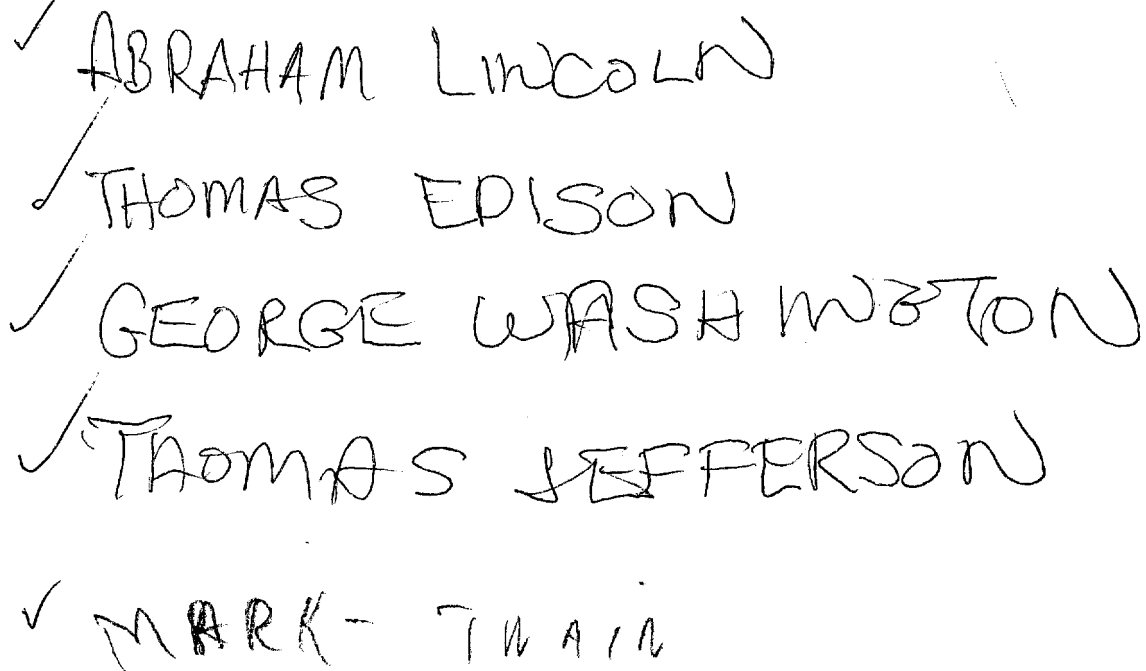 ✓ ABRAHAM LINCOLN
✓ THOMAS EDISON
✓ GEORGE WASHINGTON
✓ THOMAS JEFFERSON
✓ MARK- TWAIN